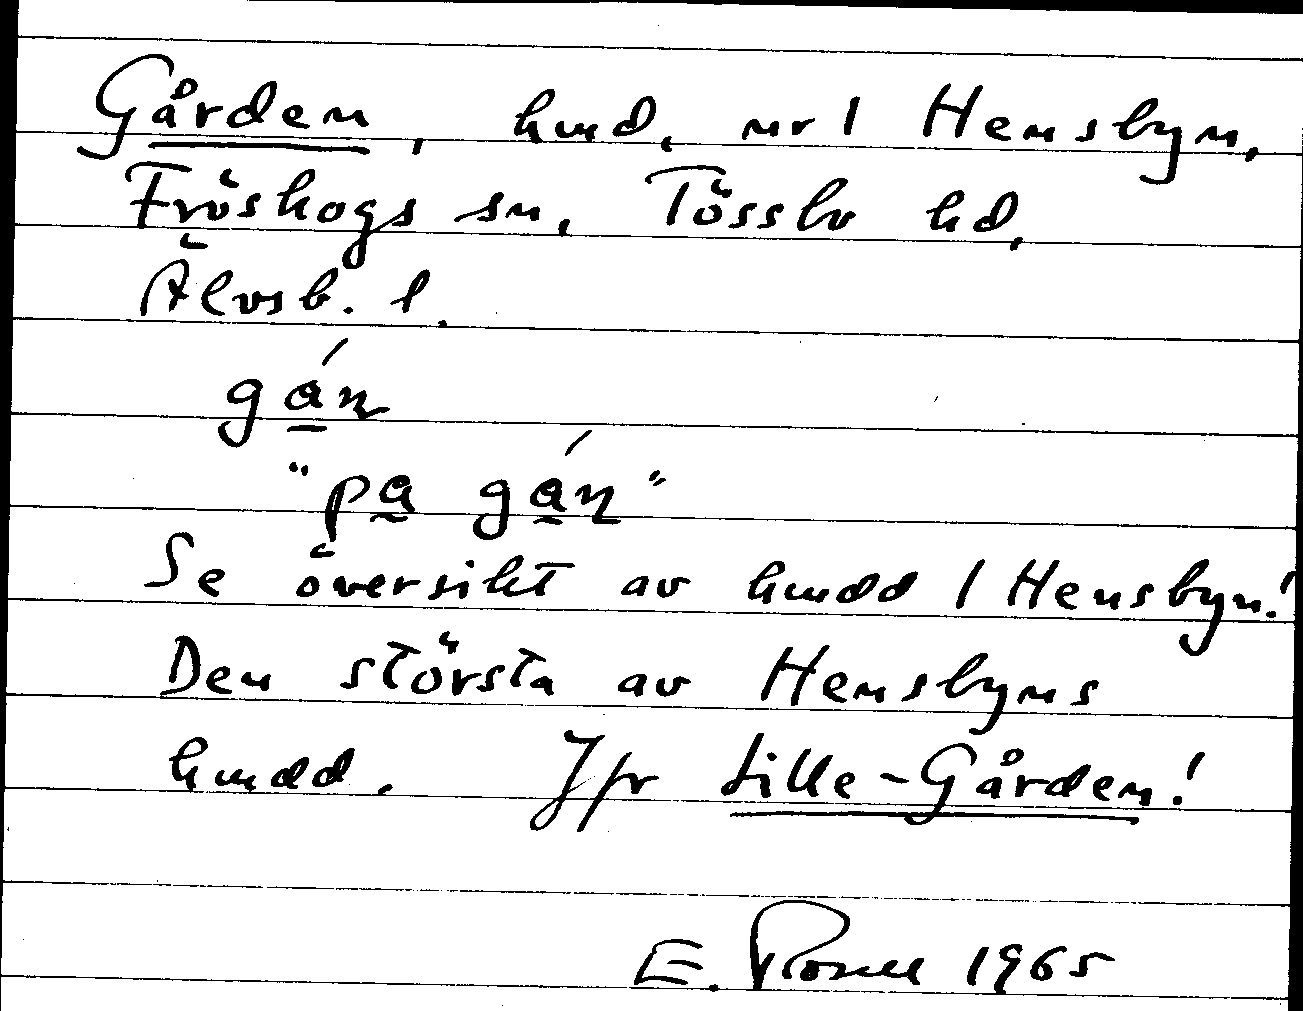 Gården, hmd, nr 1 Hensbyn,
Fröskogs sn, Tössbo hd,
Älvsb. l.
gán
"pa gán"
Se översikt av hmdd 1 Hensbyn!
Den största av Hensbyns
hmdd. Jfr Lille-Gården!
E. 1965